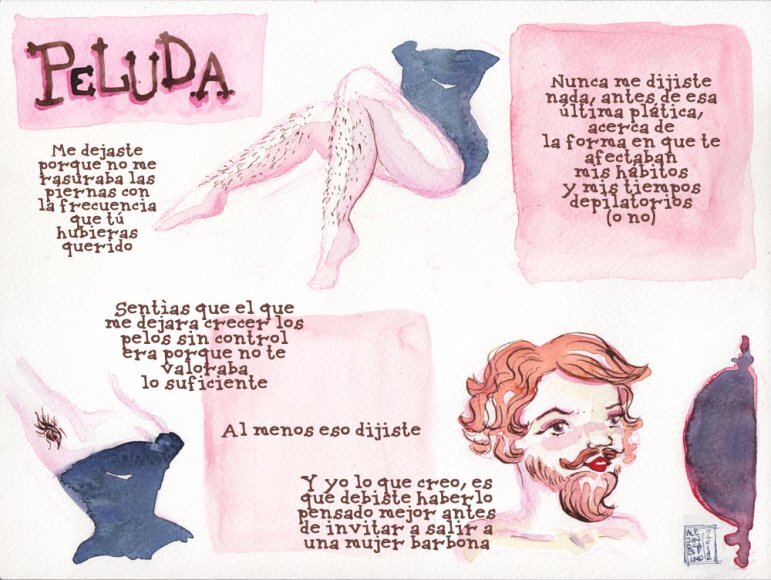 PELUDA
Me dejaste
porque no me
rasuraba las
piernas con
la frecuencia
que tú
hubieras
querido
Nunca me dijiste
nada, antes de esa
última plática,
acerca de
la forma en que te
afectaban
mis hábitos
y mis tiempos
depilatorios
(o no)
Sentìas que el que
me dejara crecer los
pelos sin control
era porque no te
valoraba
lo suficiente
Al menos eso dijiste
Y yo lo que creo, es
que debiste haberlo
pensado mejor antes
de invitar a salir a
una mujer barbona